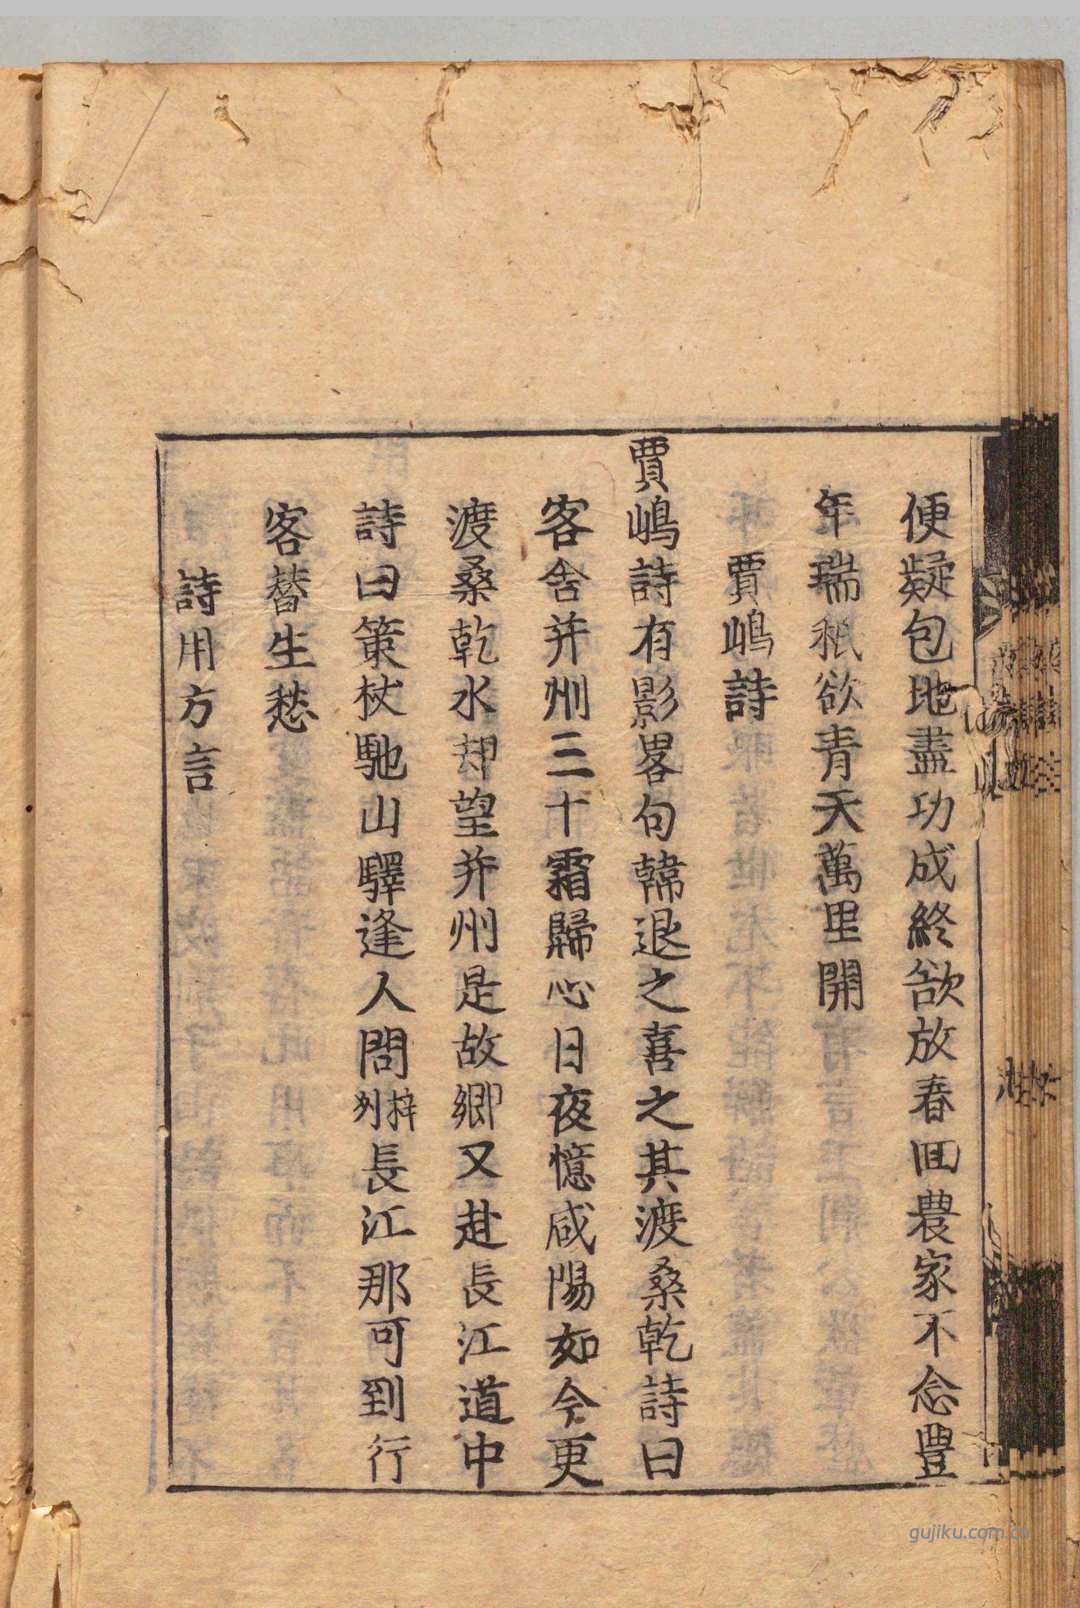 便疑包地盡功成終欲放春囬農家不念豊
年瑞秖欲青天萬里開
賈嶋詩
賈嶋詩有影畧句韓退之喜之其渡桑乾詩曰
客舎并州三十霜歸心日夜憶咸陽如今更
渡桑乾水却望并州是故郷又赴長江道中
詩曰策杖馳山驛逢人問梓列長江那可到行
客替生愁
詩用方言
gujiku.com.cn